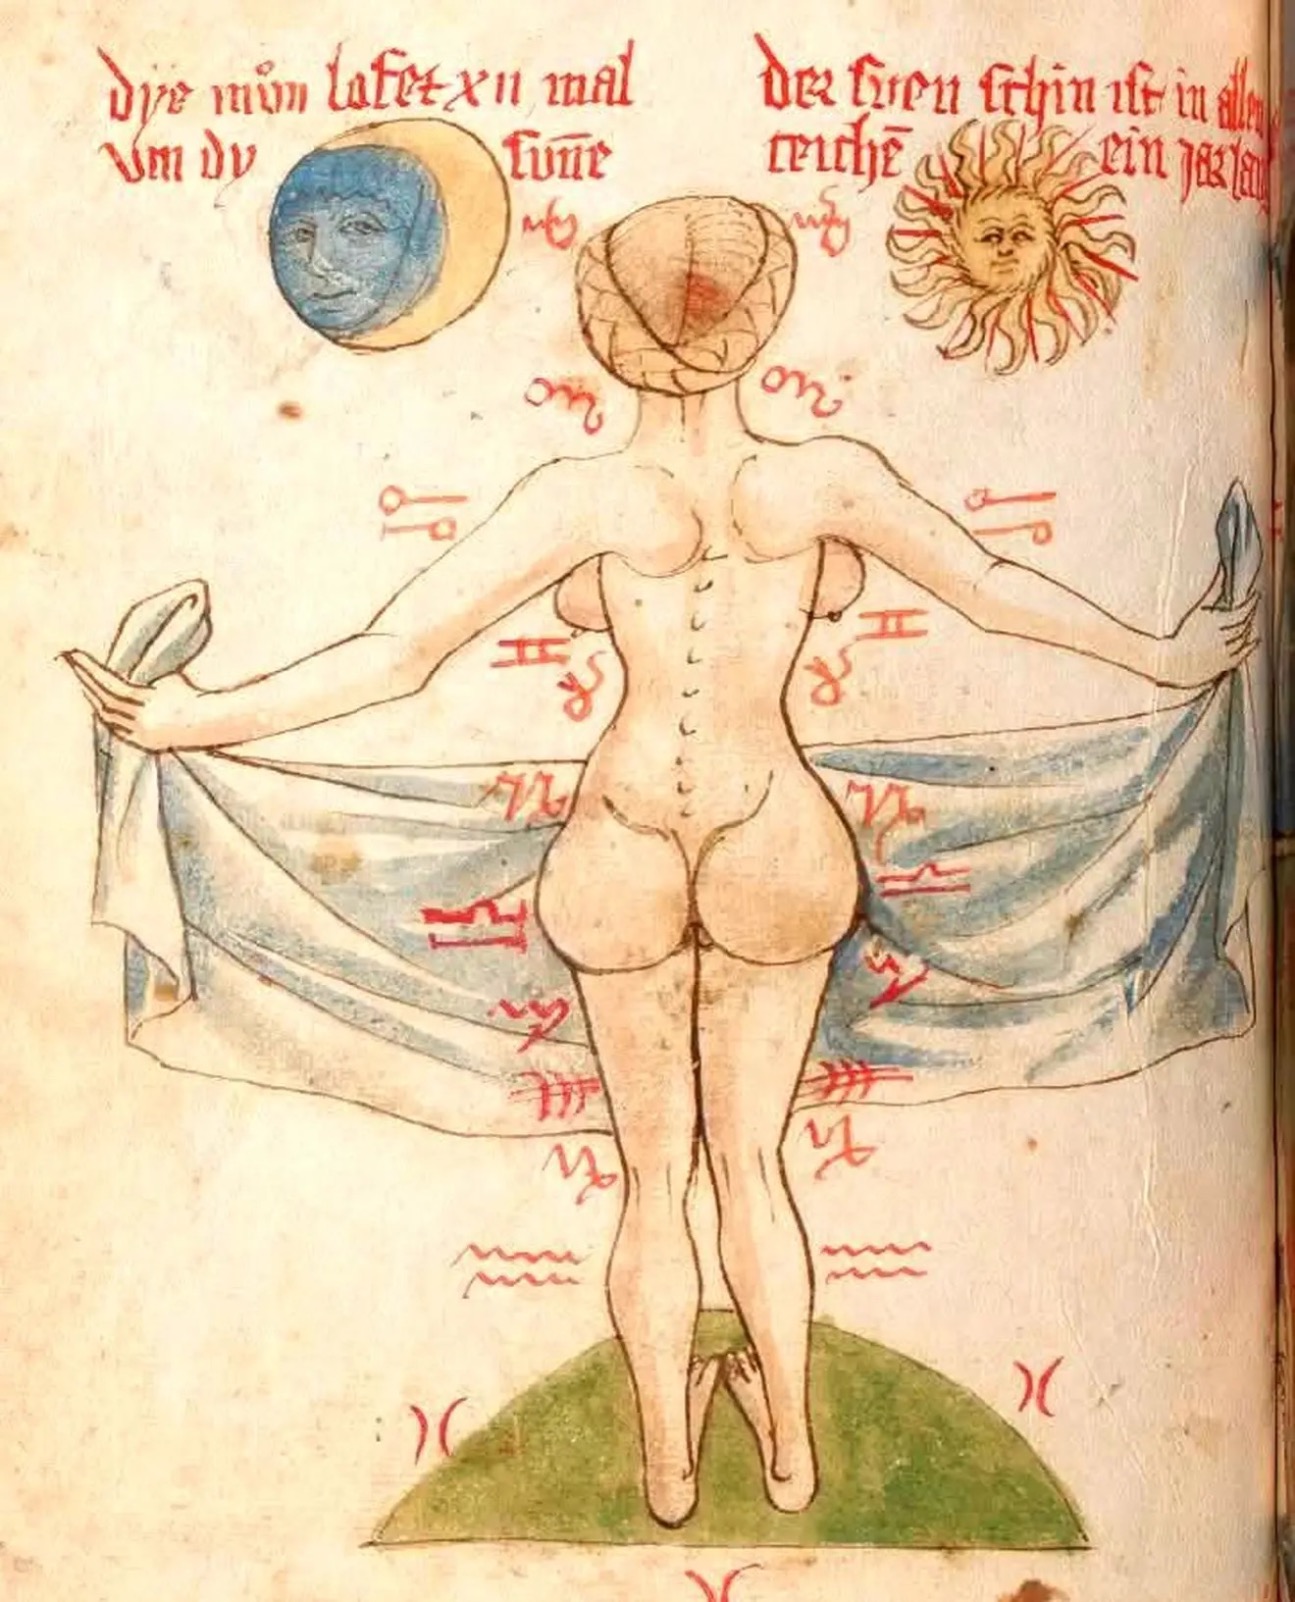 dye mon lofet xii mal
vm dy sune
der suen schin ist in allen
zeichē ein jar lan